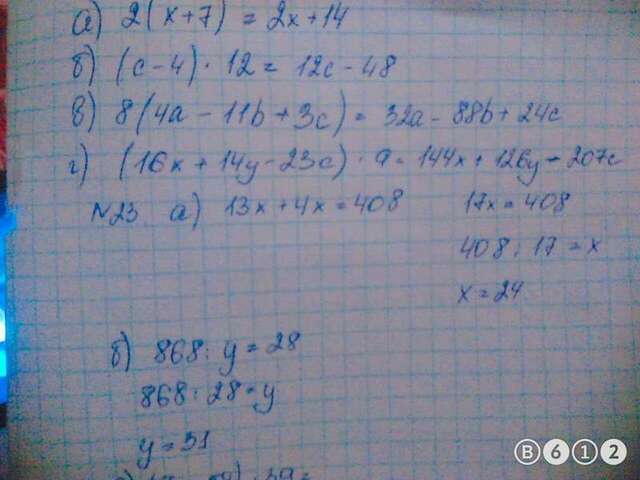 а) 2(x+7) = 2x+14
б) (c-4)·12 = 12c-48
в) 8(4a-11b+3c) = 32a-88b+24c
г) (16x+14y-23c)·9 = 144x+126y-207c
№23 а) 13x+4x=408 17x=408
408:17=x
x=24
б) 868:y=28
868:28=y
y=31
B612